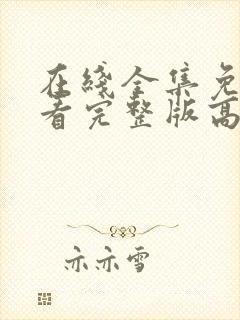 在綫全集免
看完整版高
亦亦雪